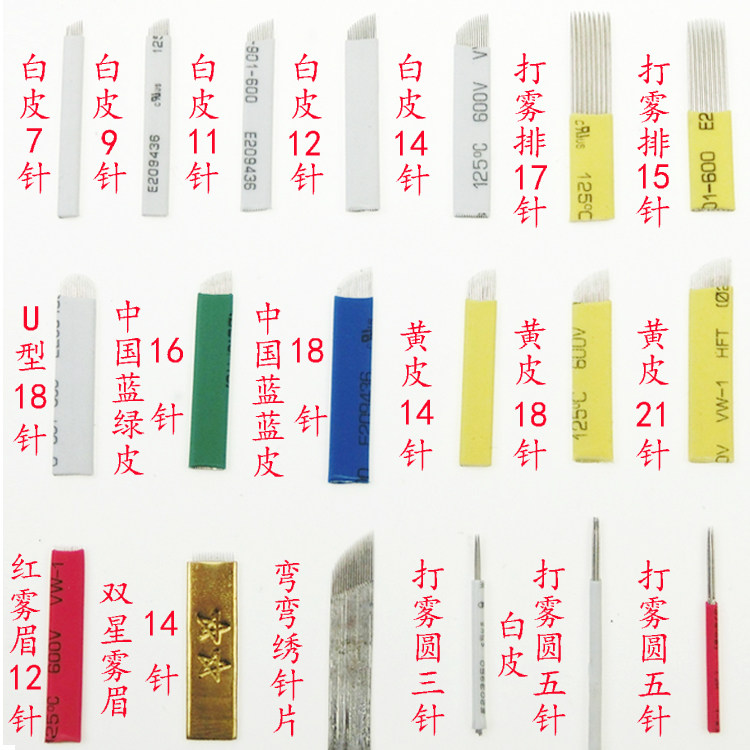 白皮7针
白皮9针
125
E209436
白皮11针
E209436
白皮12针
白皮14针
125°C 600V V
打雾排17针
125°C
打雾排15针
01-600 E2
U型18针
中国蓝绿皮16针
中国蓝蓝皮18针
E209436
黄皮14针
黄皮18针
125°C 600V
黄皮21针
0V VW-1 HFT
红雾眉12针
125°C 600V VW-1
双星雾眉14针
弯弯绣针片
打雾圆三针
白皮
打雾圆五针
打雾圆五针